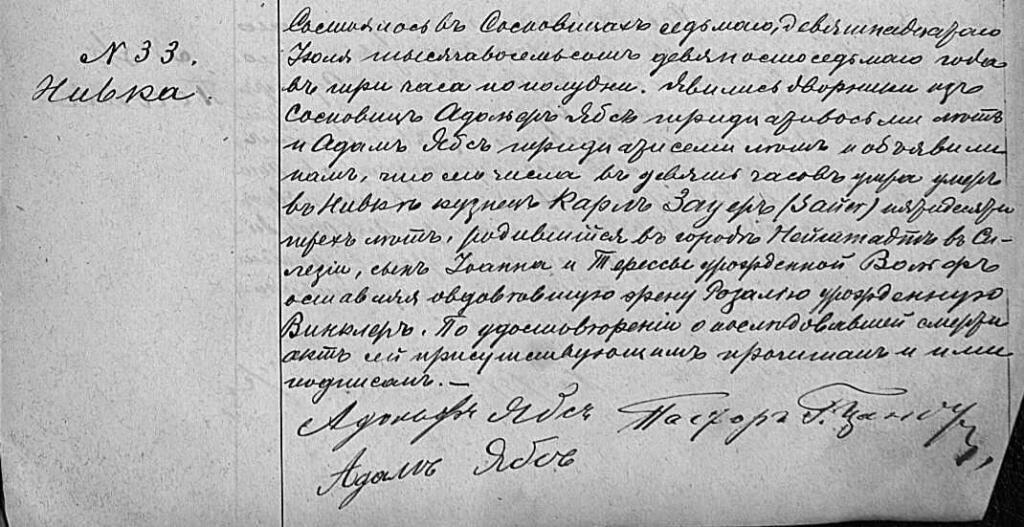 N 33.
Нивка
Состоялось въ Сосновицахъ седьмаго, девятнадцатаго
Іюля тысяча восемьсотъ девяносто седьмаго года
въ три часа по полудни. Явились дворники изъ
Сосновицъ Адольфъ Ябсъ тридцати восьми лѣтъ
и Адамъ Ябсъ тридцати семи лѣтъ и объявили
намъ, что числа въ девять часовъ утра умеръ
въ Нивкѣ кузнецъ Карлъ Зауеръ пятидесяти
трехъ лѣтъ, родившійся въ городѣ Нейштадтѣ въ Си-
лезіи, сынъ Іоанна и Терессы урожденной
оставляя овдовѣвшую жену Розалію урожденную
Винклеръ. По удостовѣреніи о послѣдовавшей смерти
актъ сей присутствующимъ прочитанъ и ими
подписанъ. —
Адольфъ Ябсъ Пасторъ Г.
Адамъ Ябсъ